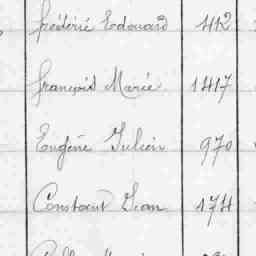 Frédéric Edouard 412
François Marie 1417
Eugène Julien 970
Constant Jean 174